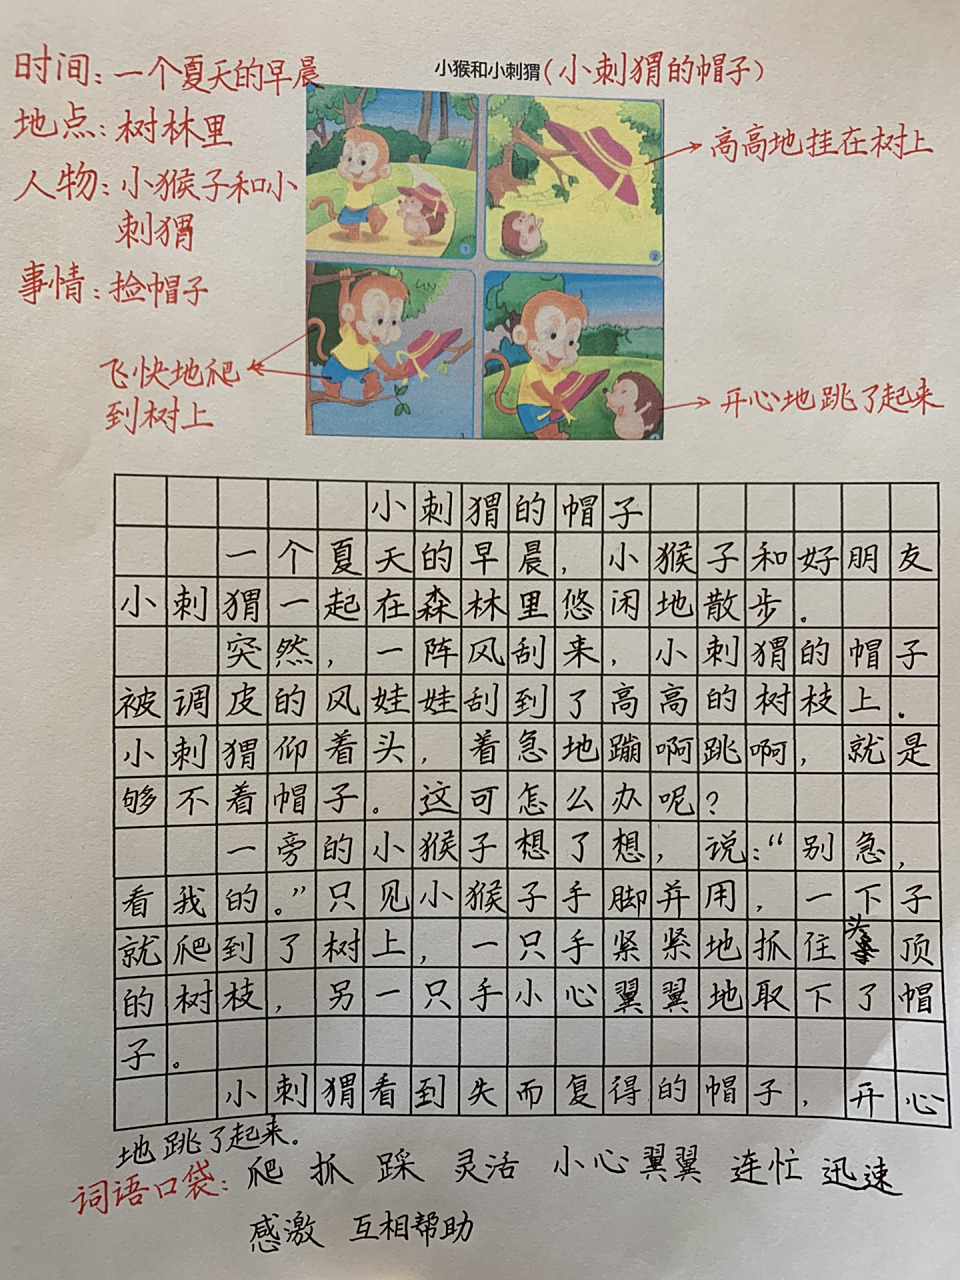 小猴和小刺猬(小刺猬的帽子)
时间:一个夏天的早晨
地点:树林里
人物:小猴子和小
刺猬
事情:捡帽子
高高地挂在树上
飞快地爬
到树上
开心地跳了起来
小刺猬的帽子
一个夏天的早晨,小猴子和好朋友
小刺猬一起在森林里悠闲地散步。
突然,一阵风刮来,小刺猬的帽子
被调皮的风娃娃刮到了高高的树枝上。
小刺猬仰着头,着急地蹦啊跳啊,就是
够不着帽子。这可怎么办呢?
一旁的小猴子想了想,说:“别急,
看我的。”只见小猴子手脚并用,一下子
就爬到了树上,一只手紧紧地抓住头顶
的树枝,另一只手小心翼翼地取下了帽
子。
小刺猬看到失而复得的帽子,开心
地跳了起来。
词语口袋:爬 抓 踩 灵活 小心翼翼 连忙 迅速
感激 互相帮助